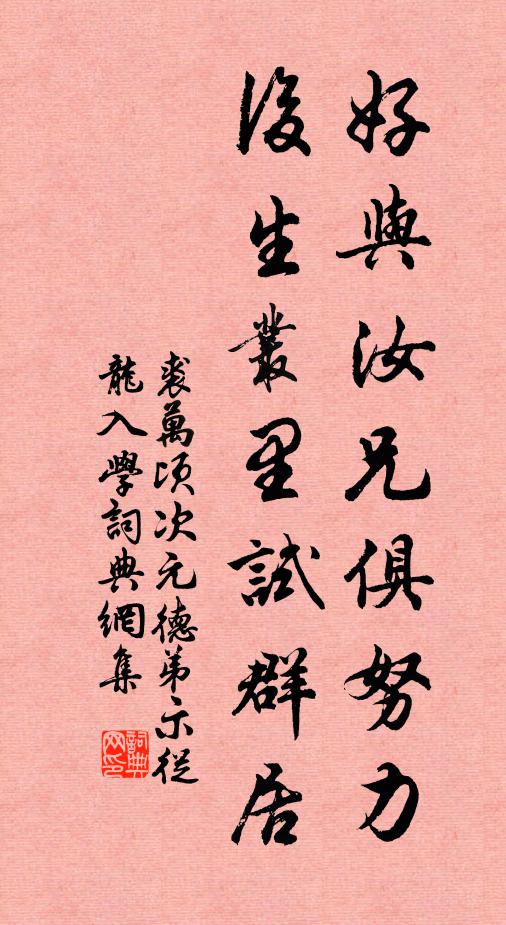 好與汝兄俱努力
後生叢里試群居
裘萬頃次元德弟示從
龍入學詞典網集
詞典網印